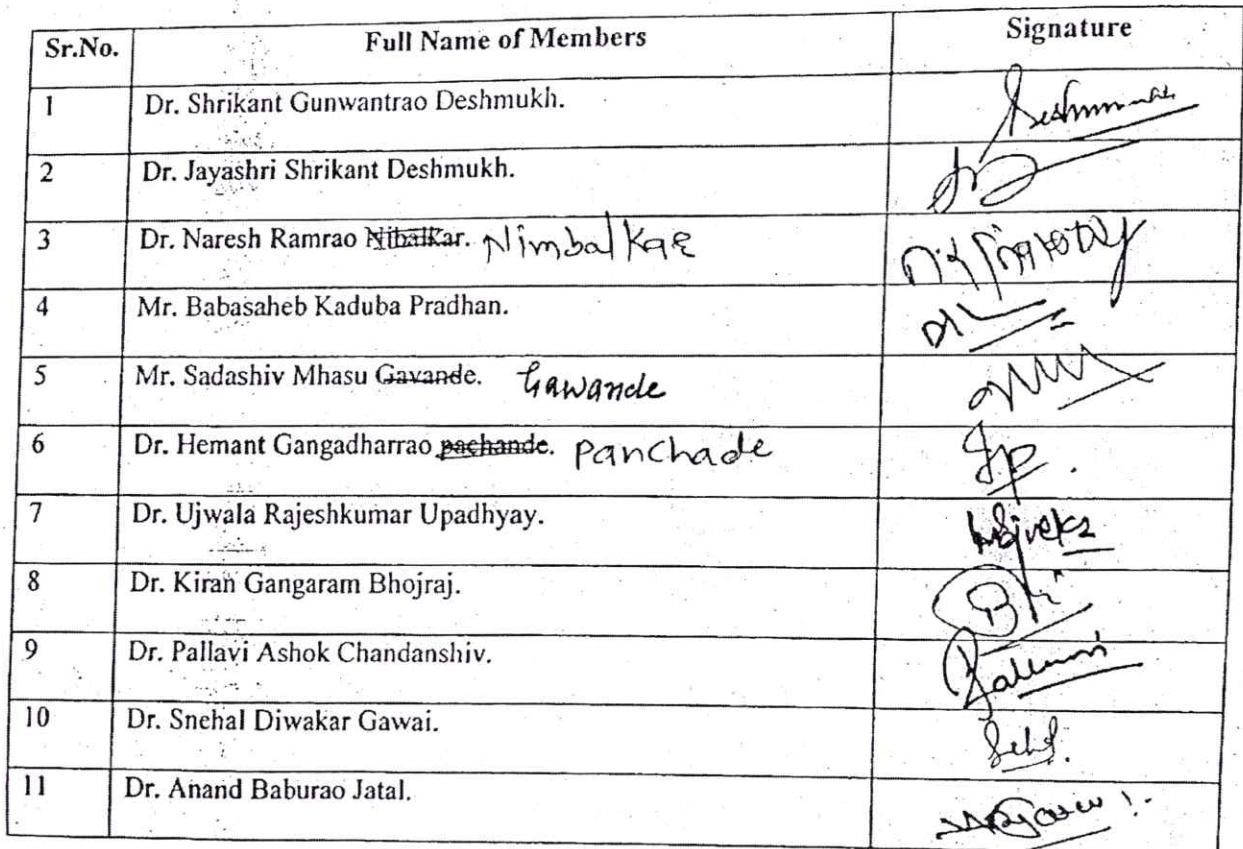 Sr.No. Full Name of Members Signature
1 Dr. Shrikant Gunwantrao Deshmukh.
2 Dr. Jayashri Shrikant Deshmukh.
3 Dr. Naresh Ramrao Nibalkar. Nimbalkar
4 Mr. Babasaheb Kaduba Pradhan.
5 Mr. Sadashiv Mhasu Gavande. Gawande
6 Dr. Hemant Gangadharrao pachande. Panchade
7 Dr. Ujwala Rajeshkumar Upadhyay.
8 Dr. Kiran Gangaram Bhojraj.
9 Dr. Pallavi Ashok Chandanshiv.
10 Dr. Snehal Diwakar Gawai.
11 Dr. Anand Baburao Jatal.